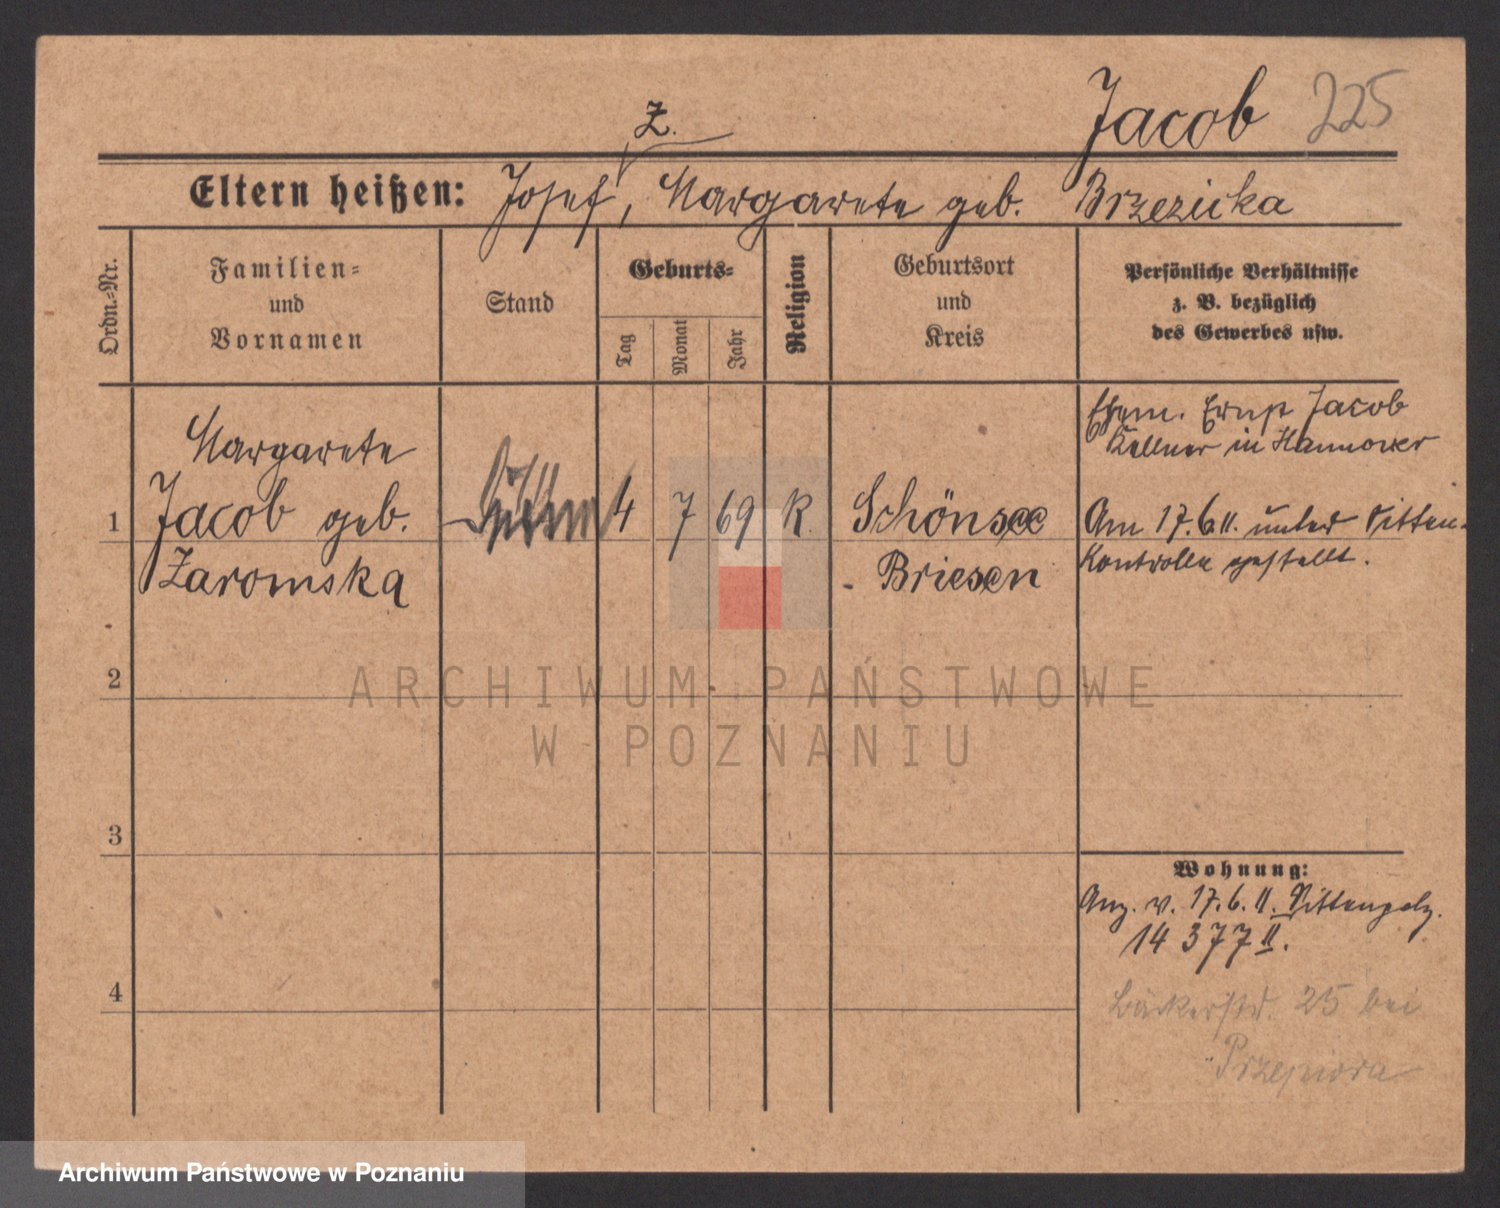 Jacob 225
Z.
Eltern heißen: Josef, Margarete geb. Brzezicka
Ordn.-Nr.
Familien-
und
Vornamen
Stand
Geburts-
Tag
Monat
Jahr
Religion
Geburtsort
und
Kreis
Persönliche Verhältnisse
z. B. bezüglich
des Gewerbes usw.
Margarete
1 Jacob geb. 4 7 69 K. Schönsee
Zaromska Briesen
Ehem. Ernst Jacob
Kellner in Hannover
Am 17.6.11. unter Sitten-
Kontrolle gestellt.
2
3
4
Wohnung:
Anz. v. 17.6.11. Sittenpolz.
14 377 II.
Bäckerstr. 25 bei
ARCHIWUM PAŃSTWOWE
W POZNANIU
Archiwum Państwowe w Poznaniu